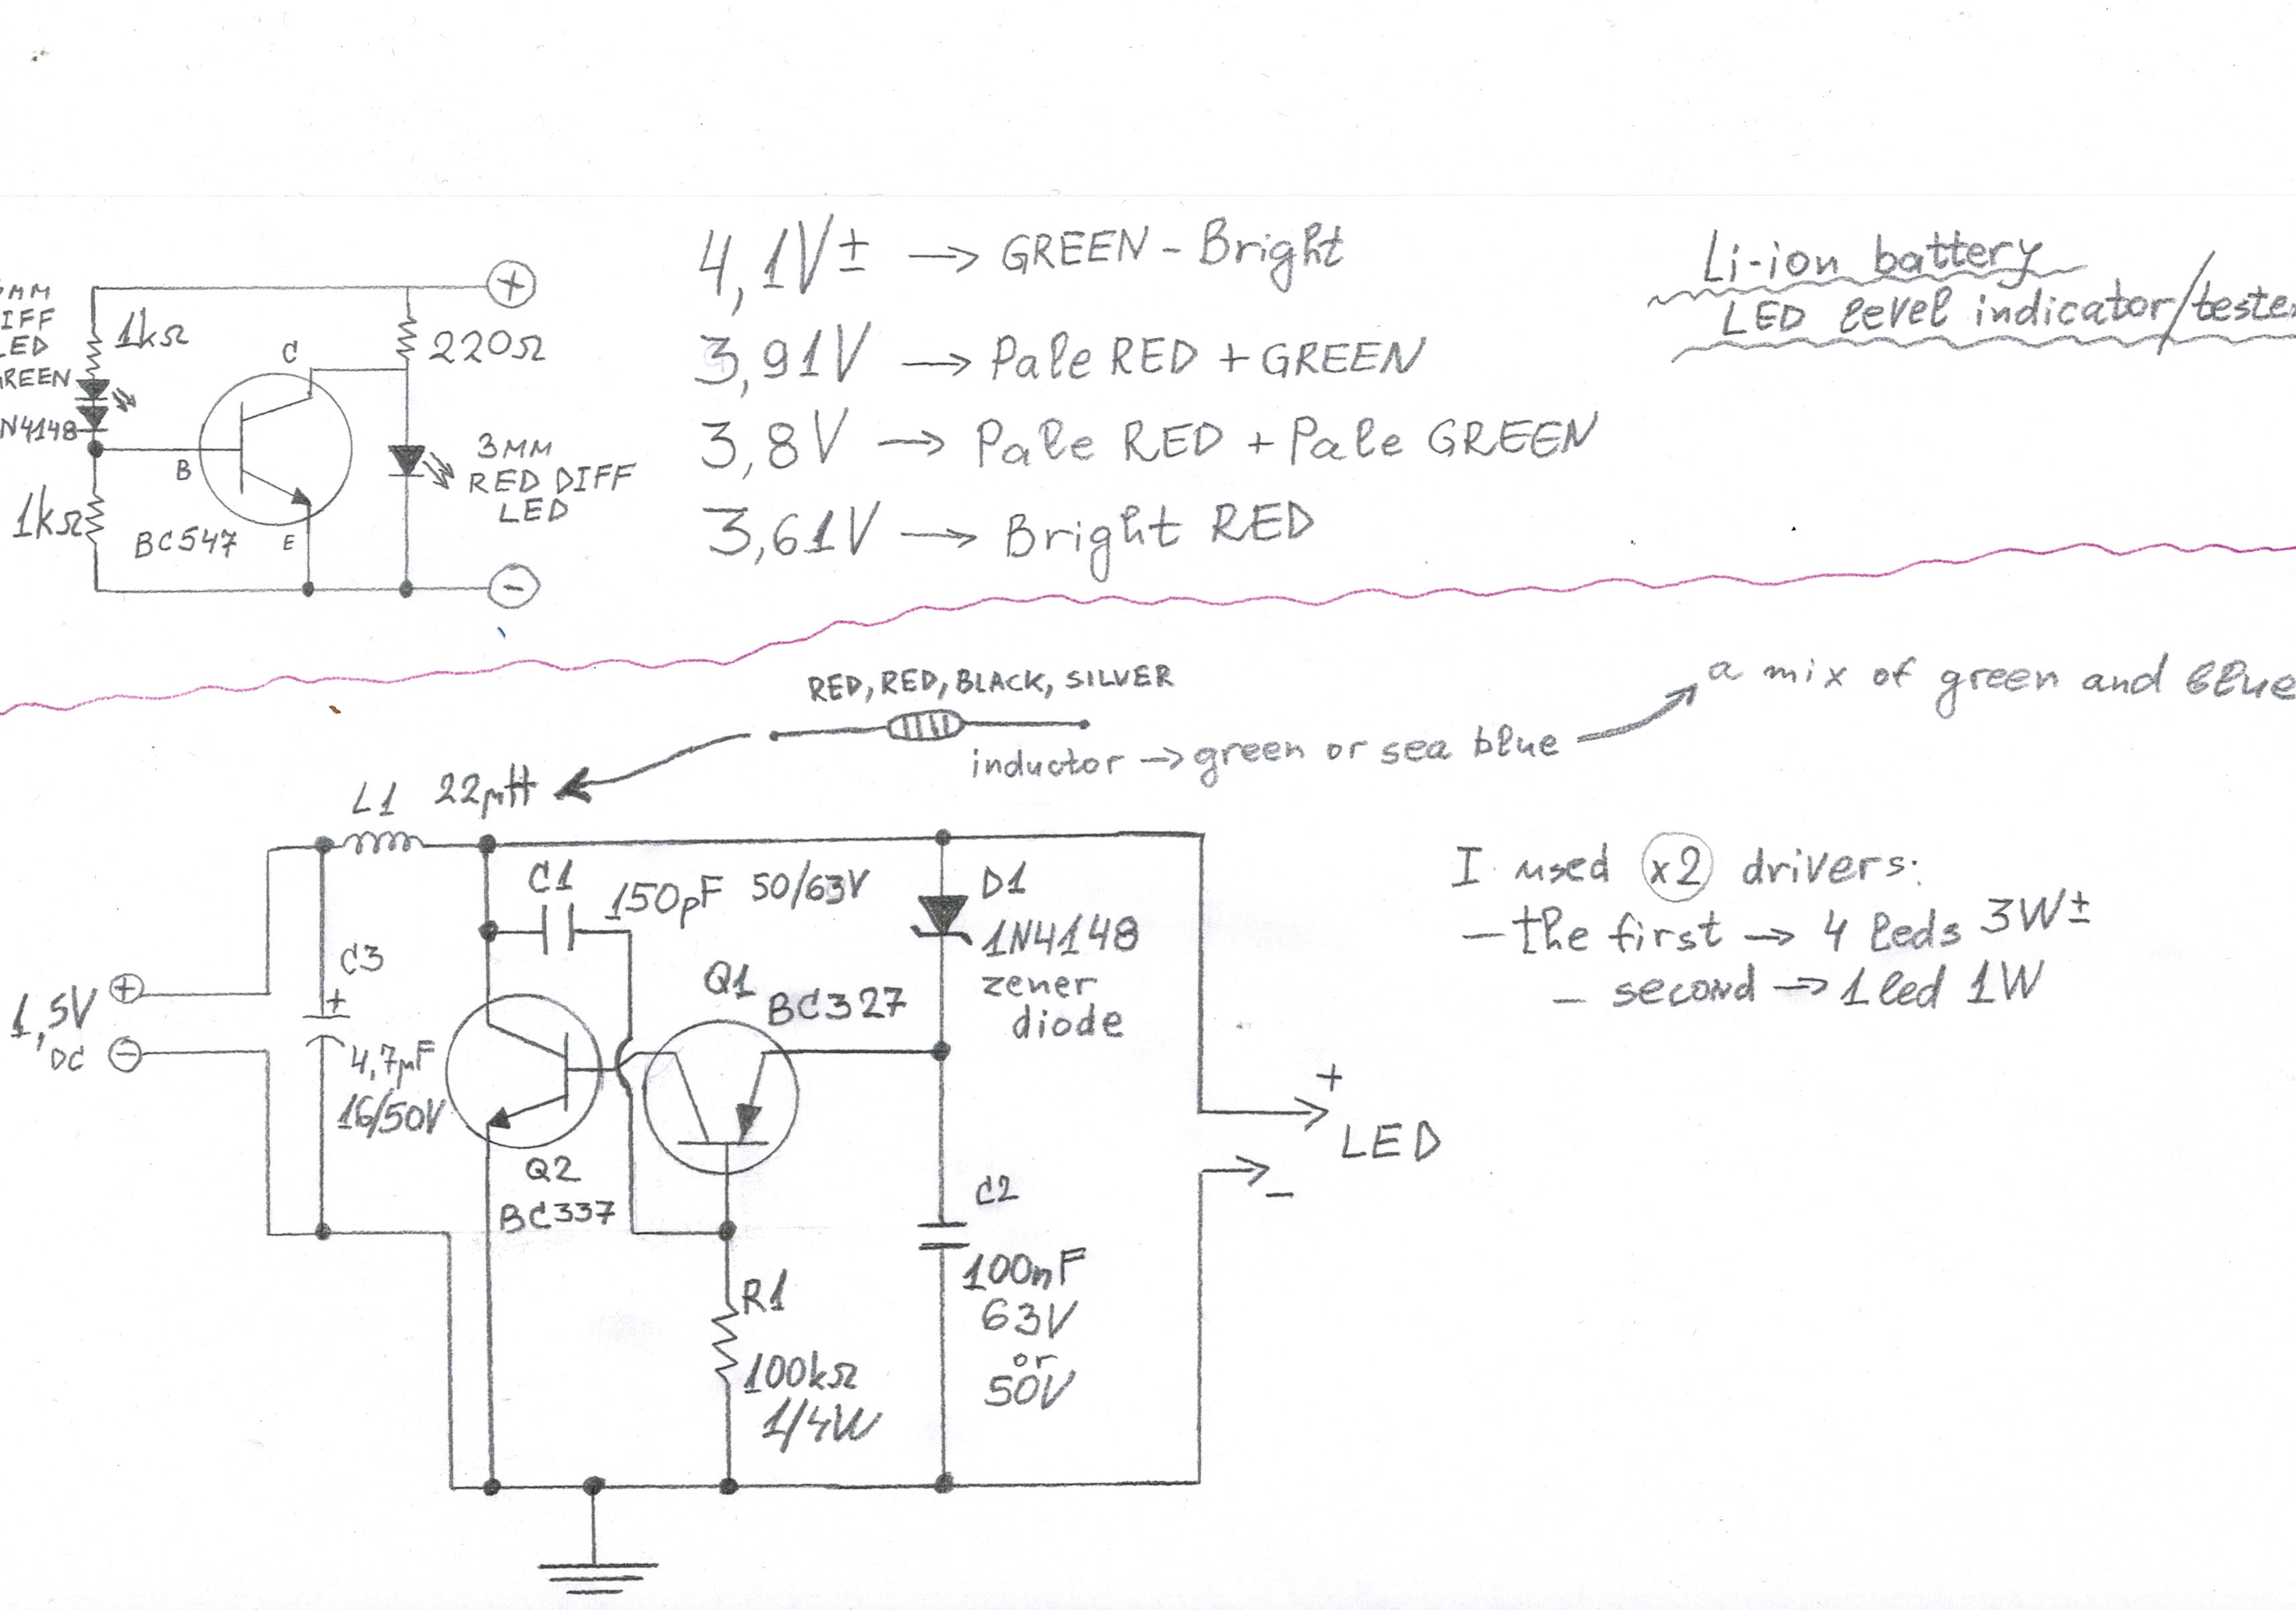 4,1V± → GREEN - Bright
3,91V → Pale RED + GREEN
3,8V → Pale RED + Pale GREEN
3,61V → Bright RED
Li-ion battery
LED level indicator/teste
MM
IFF
LED
REEN
N4148
1kΩ
1kΩ
C
B
E
BC547
+
220Ω
3MM
RED DIFF
LED
-
RED, RED, BLACK, SILVER
inductor → green or sea blue
a mix of green and blue
L1 22μH
C1 150pF 50/63V
D1
1N4148
zener
diode
C3
+
4,7μF
16/50V
1,5V
DC
+
-
Q1 BC327
Q2
BC337
R1
100kΩ
1/4W
C2
100nF
63V
or
50V
+
LED
-
I used x2 drivers:
- the first → 4 leds 3W±
- second → 1 led 1W